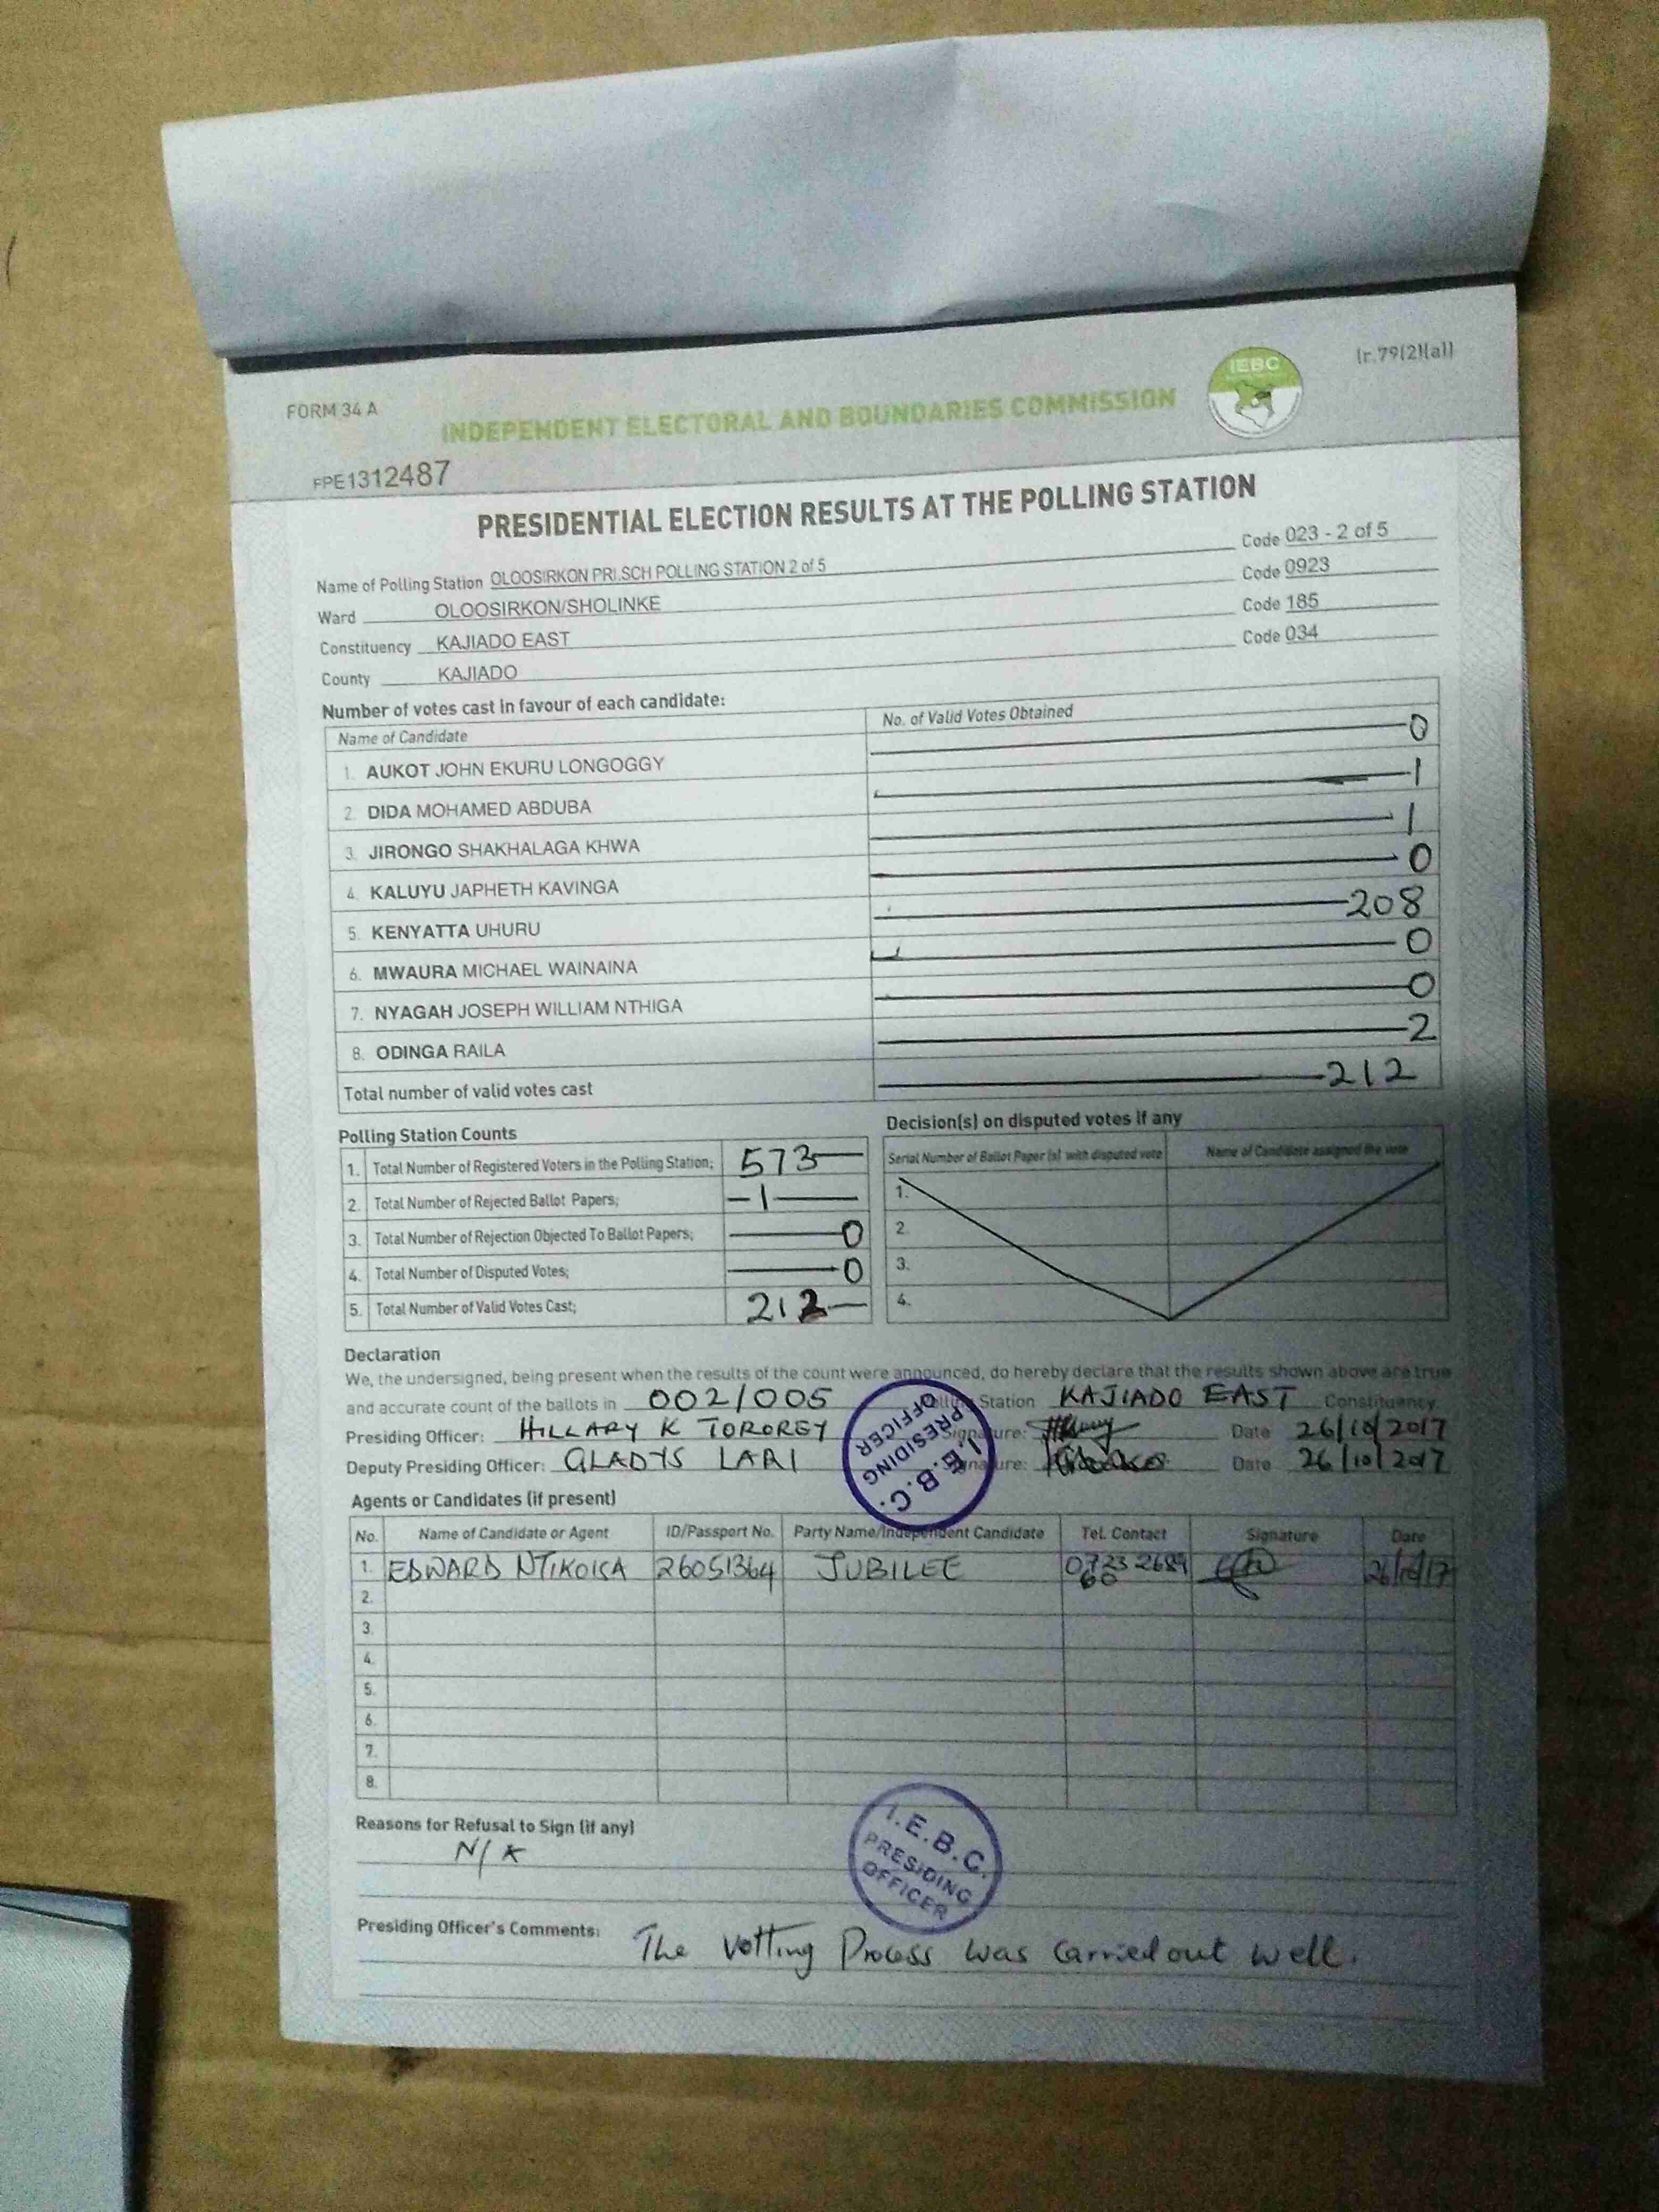 IEBC
(r.79(2)(a))
FORM 34 A
INDEPENDENT ELECTORAL AND BOUNDARIES COMMISSION
FPE1312487
PRESIDENTIAL ELECTION RESULTS AT THE POLLING STATION
Name of Polling Station OLOOSIRKON PRI.SCH POLLING STATION 2 of 5 Code 023 - 2 of 5
Ward OLOOSIRKON/SHOLINKE Code 0923
Constituency KAJIADO EAST Code 185
County KAJIADO Code 034
Number of votes cast in favour of each candidate:
Name of Candidate No. of Valid Votes Obtained
1. AUKOT JOHN EKURU LONGOGGY 0
2. DIDA MOHAMED ABDUBA 1
3. JIRONGO SHAKHALAGA KHWA 1
4. KALUYU JAPHETH KAVINGA 0
5. KENYATTA UHURU 208
6. MWAURA MICHAEL WAINAINA 0
7. NYAGAH JOSEPH WILLIAM NTHIGA 0
8. ODINGA RAILA 2
Total number of valid votes cast 212
Polling Station Counts
1. Total Number of Registered Voters in the Polling Station; 573
2. Total Number of Rejected Ballot Papers; 1
3. Total Number of Rejection Objected To Ballot Papers; 0
4. Total Number of Disputed Votes; 0
5. Total Number of Valid Votes Cast; 212
Decision(s) on disputed votes if any
Serial Number of Ballot Paper (s) with disputed vote Name of Candidate assigned the vote
1.
2.
3.
4.
Declaration
We, the undersigned, being present when the results of the count were announced, do hereby declare that the results shown above are true
and accurate count of the ballots in 002/005 Polling Station KAJIADO EAST Constituency.
Presiding Officer: HILLARY K TOROREY Signature: Date 26/10/2017
Deputy Presiding Officer: GLADYS LARI Signature: Date 26/10/2017
I.E.B.C. PRESIDING OFFICER
Agents or Candidates (if present)
No. Name of Candidate or Agent ID/Passport No. Party Name/Independent Candidate Tel. Contact Signature Date
1. EDWARD NTIKOISA 26051364 JUBILEE 0723 2689 60 26/10/17
2.
3.
4.
5.
6.
7.
8.
Reasons for Refusal to Sign (if any)
N/A
I.E.B.C. PRESIDING OFFICER
Presiding Officer's Comments: The Votting Process was carried out well.